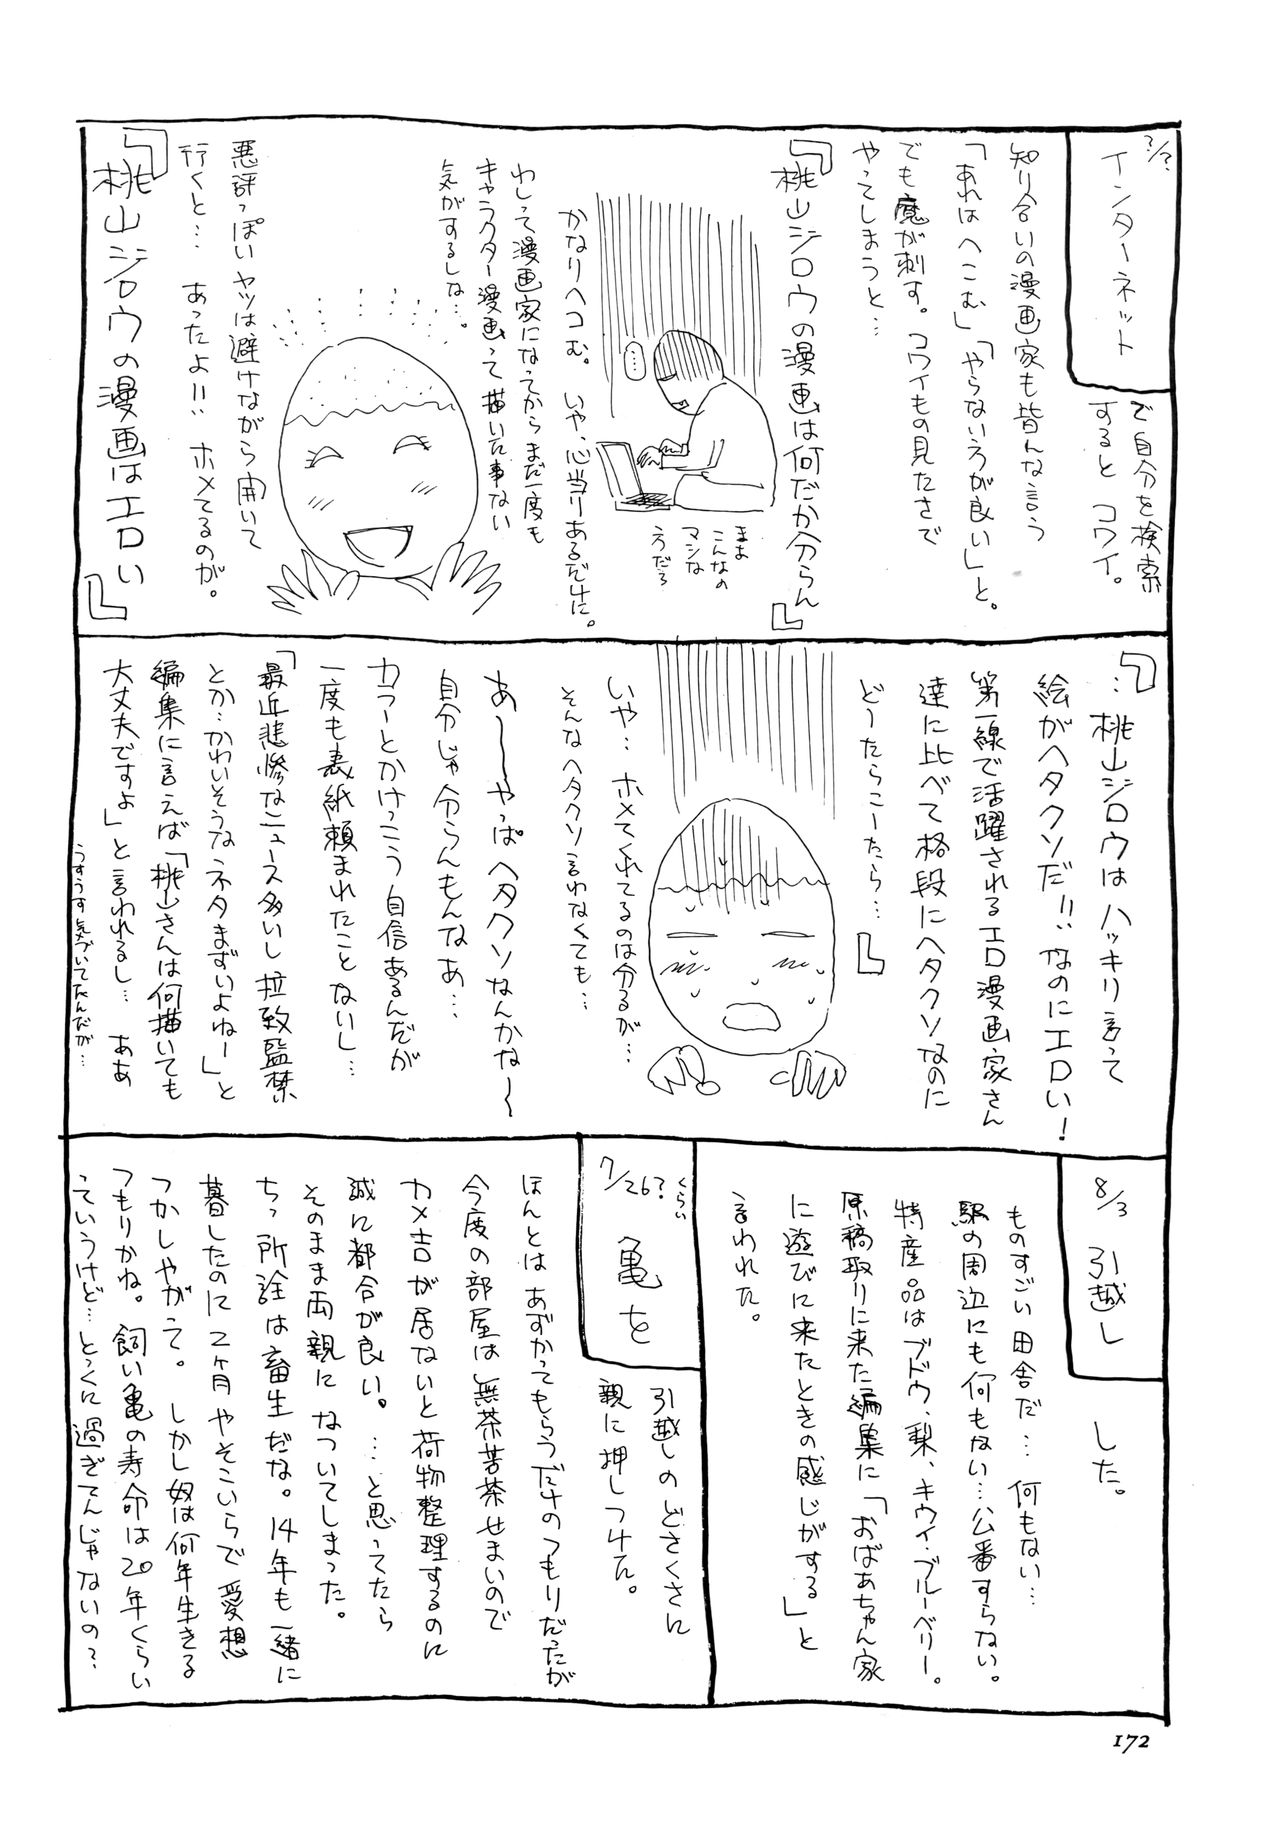 ?/?
インターネット
で自分を検索
すると コワイ。
知り合いの漫画家も皆んな言う
「あれはへこむ」「やらないろが良い」と。
でも魔が刺す。コワイもの見たさで
やってしまうと…
『桃山ジロウの漫画は何だか分らん』
まあ
こんなの
マシな
うだろ
…
かなりヘコむ。 いや、心当りあるだけに。
わしって漫画家になってからまだ一度も
キャラクター漫画って描いた事ない
気がするしな…。
悪評っぽいヤツは避けながら開いて
行くと… あったよ!! ホメてるのが。
『桃山ジロウの漫画はエロい』
『…桃山ジロウはハッキリ言って
絵がヘタクソだ!! なのにエロい!
第一線で活躍されるエロ漫画家さん
達に比べて格段にヘタクソなのに
どーたらこーたら…』
いや… ホメてくれてるのは分るが…
そんなヘタクソ言わなくても…
あ〜〜やっぱヘタクソなんかな〜
自分じゃ分らんもんなぁ…
カラーとかけっこう自信あるんだが
一度も表紙頼まれたことないし…
「最近悲惨なニュース多いし拉致監禁
とか…かわいそうなネタまずいよねー」と
編集に言えば「桃山さんは何描いても
大丈夫ですよ」と言われるし… ああ
うすうす気づいてたんだが…
8/3 引越し
した。
ものすごい田舎だ… 何もない…
駅の周辺にも何もない…公番すらない。
特産品はブドウ・梨、キウイ・ブルーベリー。
原稿取りに来た編集に「おばあちゃん家
に遊びに来たときの感じがする」と
言われた。
7/26?くらい
亀を
引越しのどさくさに
親に押しつけた。
ほんとはあずかってもらうだけのつもりだったが
今度の部屋は無茶苦茶せまいので
カメ吉が居ないと荷物整理するのに
誠に都合が良い。…と思ってたら
そのまま両親になついてしまった。
ちっ所詮は畜生だな。14年も一緒に
暮したのに2ヶ月やそこいらで愛想
つかしやがって。 しかし奴は何年生きる
つもりかね。飼い亀の寿命は20年くらい
ていうけど…とっくに過ぎてんじゃないの?
172